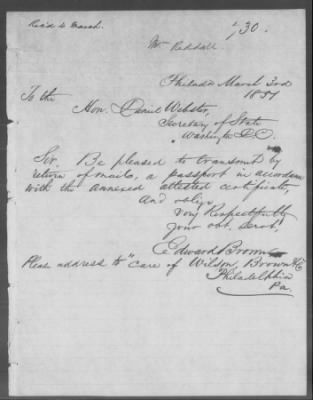 Rec'd 4 March.
730.
Mr Reddall
Philada March 3rd
1851
To the
Hon. Daniel Webster,
Secretary of State
Washington D.C.
Sir. Be pleased to transmit by
return of mails, a passport in accordance
with the annexed attested certificate,
and oblige
Very Respectfully
Your obt. Servt.
Edward Brown
Pleas address to "Care of Wilson, Brown & Co
Philadelphia
Pa.